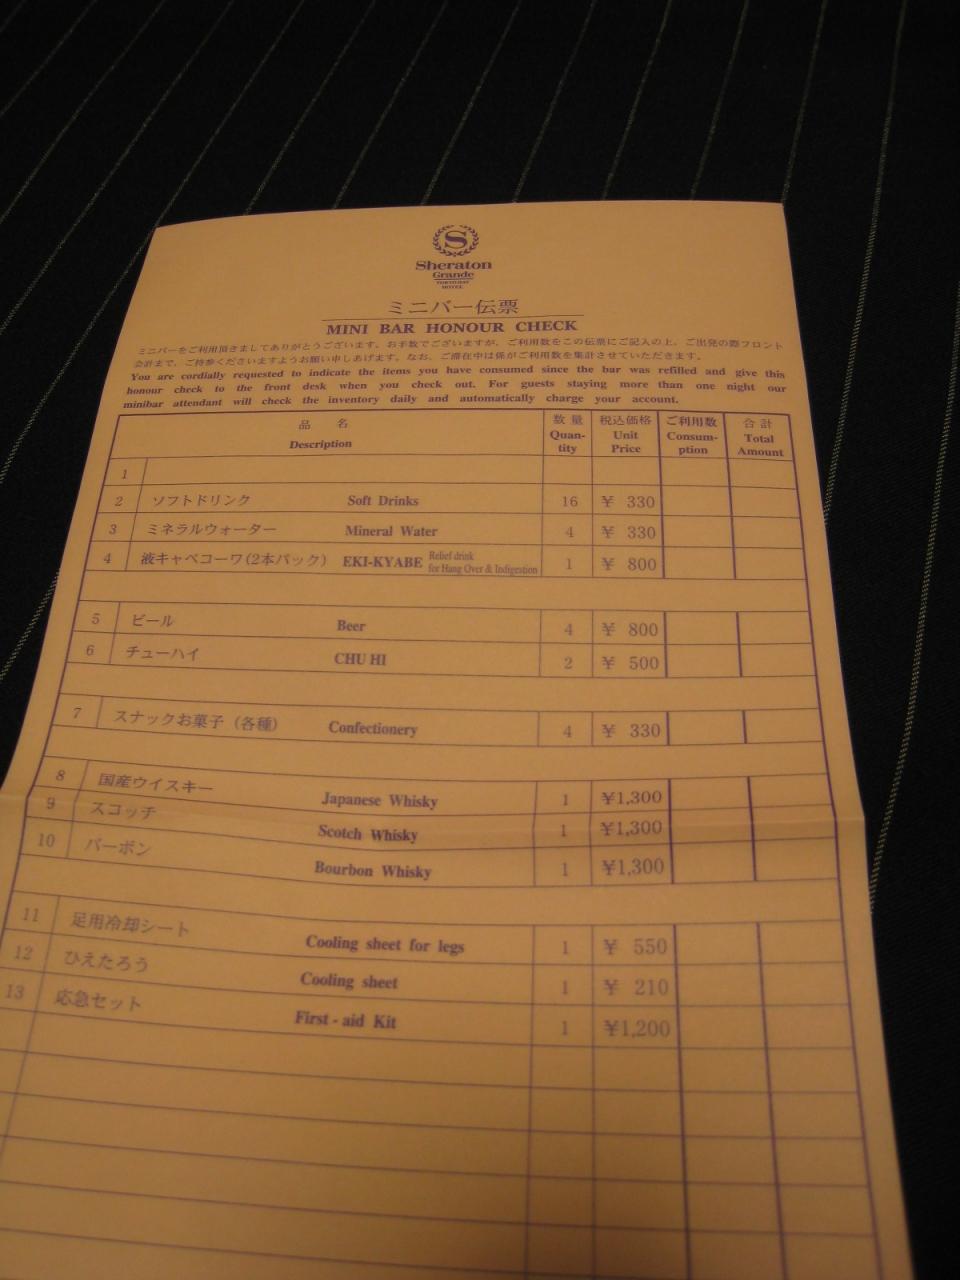 S
Sheraton
Grande
TOKYO BAY
HOTEL
ミニバー伝票
MINI BAR HONOUR CHECK
ミニバーをご利用頂きましてありがとうございます。お手数でございますが、ご利用数をこの伝票にご記入の上、ご出発の際フロント
会計まで、ご持参くださいますようお願い申しあげます。なお、ご滞在中は係がご利用数を集計させていただきます。
You are cordially requested to indicate the items you have consumed since the bar was refilled and give this
honour check to the front desk when you check out. For guests staying more than one night our
minibar attendant will check the inventory daily and automatically charge your account.
品 名 数 量 税込価格 ご利用数 合 計
Description Quan-tity Unit Price Consum-ption Total Amount
1
2 ソフトドリンク Soft Drinks 16 ¥ 330
3 ミネラルウォーター Mineral Water 4 ¥ 330
4 液キャベコーワ(2本パック) EKI-KYABE Relief drink for Hang Over & Indigestion 1 ¥ 800
5 ビール Beer 4 ¥ 800
6 チューハイ CHU HI 2 ¥ 500
7 スナックお菓子 (各種) Confectionery 4 ¥ 330
8 国産ウイスキー Japanese Whisky 1 ¥1,300
9 スコッチ Scotch Whisky 1 ¥1,300
10 バーボン Bourbon Whisky 1 ¥1,300
11 足用冷却シート Cooling sheet for legs 1 ¥ 550
12 ひえたろう Cooling sheet 1 ¥ 210
13 応急セット First - aid Kit 1 ¥1,200